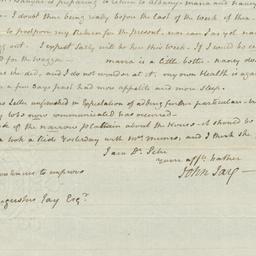 is preparing to return to Albany. maria and nancy
I doubt their being ready before the last of the week of the
to postpone my Return for the present. nor can I as yet na
out. I expect Sally will be here this week. If I would be co
for the waggon. maria is a little better. nancy do
she did, and I do not wonder at it, my own Health is again
a few Days past had more appetite and more sleep.
Letter unfinished in Expectation of adding further particulars
who now communicated has occurred
of the narrow plantain about the House. it should be
took a Ride Yesterday with Mrs. Munro, and I think she
I am Dr. Peter
your affte. Father
John Jay
continues to improve
Augustus Jay Esqr.